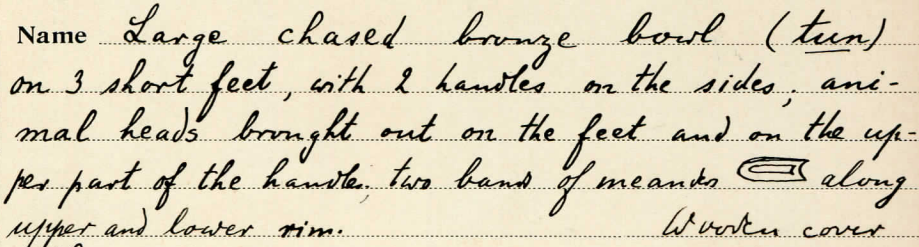 Name Large chased bronze bowl (tun)
on 3 short feet, with 2 handles on the sides; ani-
mal heads brought out on the feet and on the up-
per part of the handle. two bands of meanders along
upper and lower rim. Wooden cover